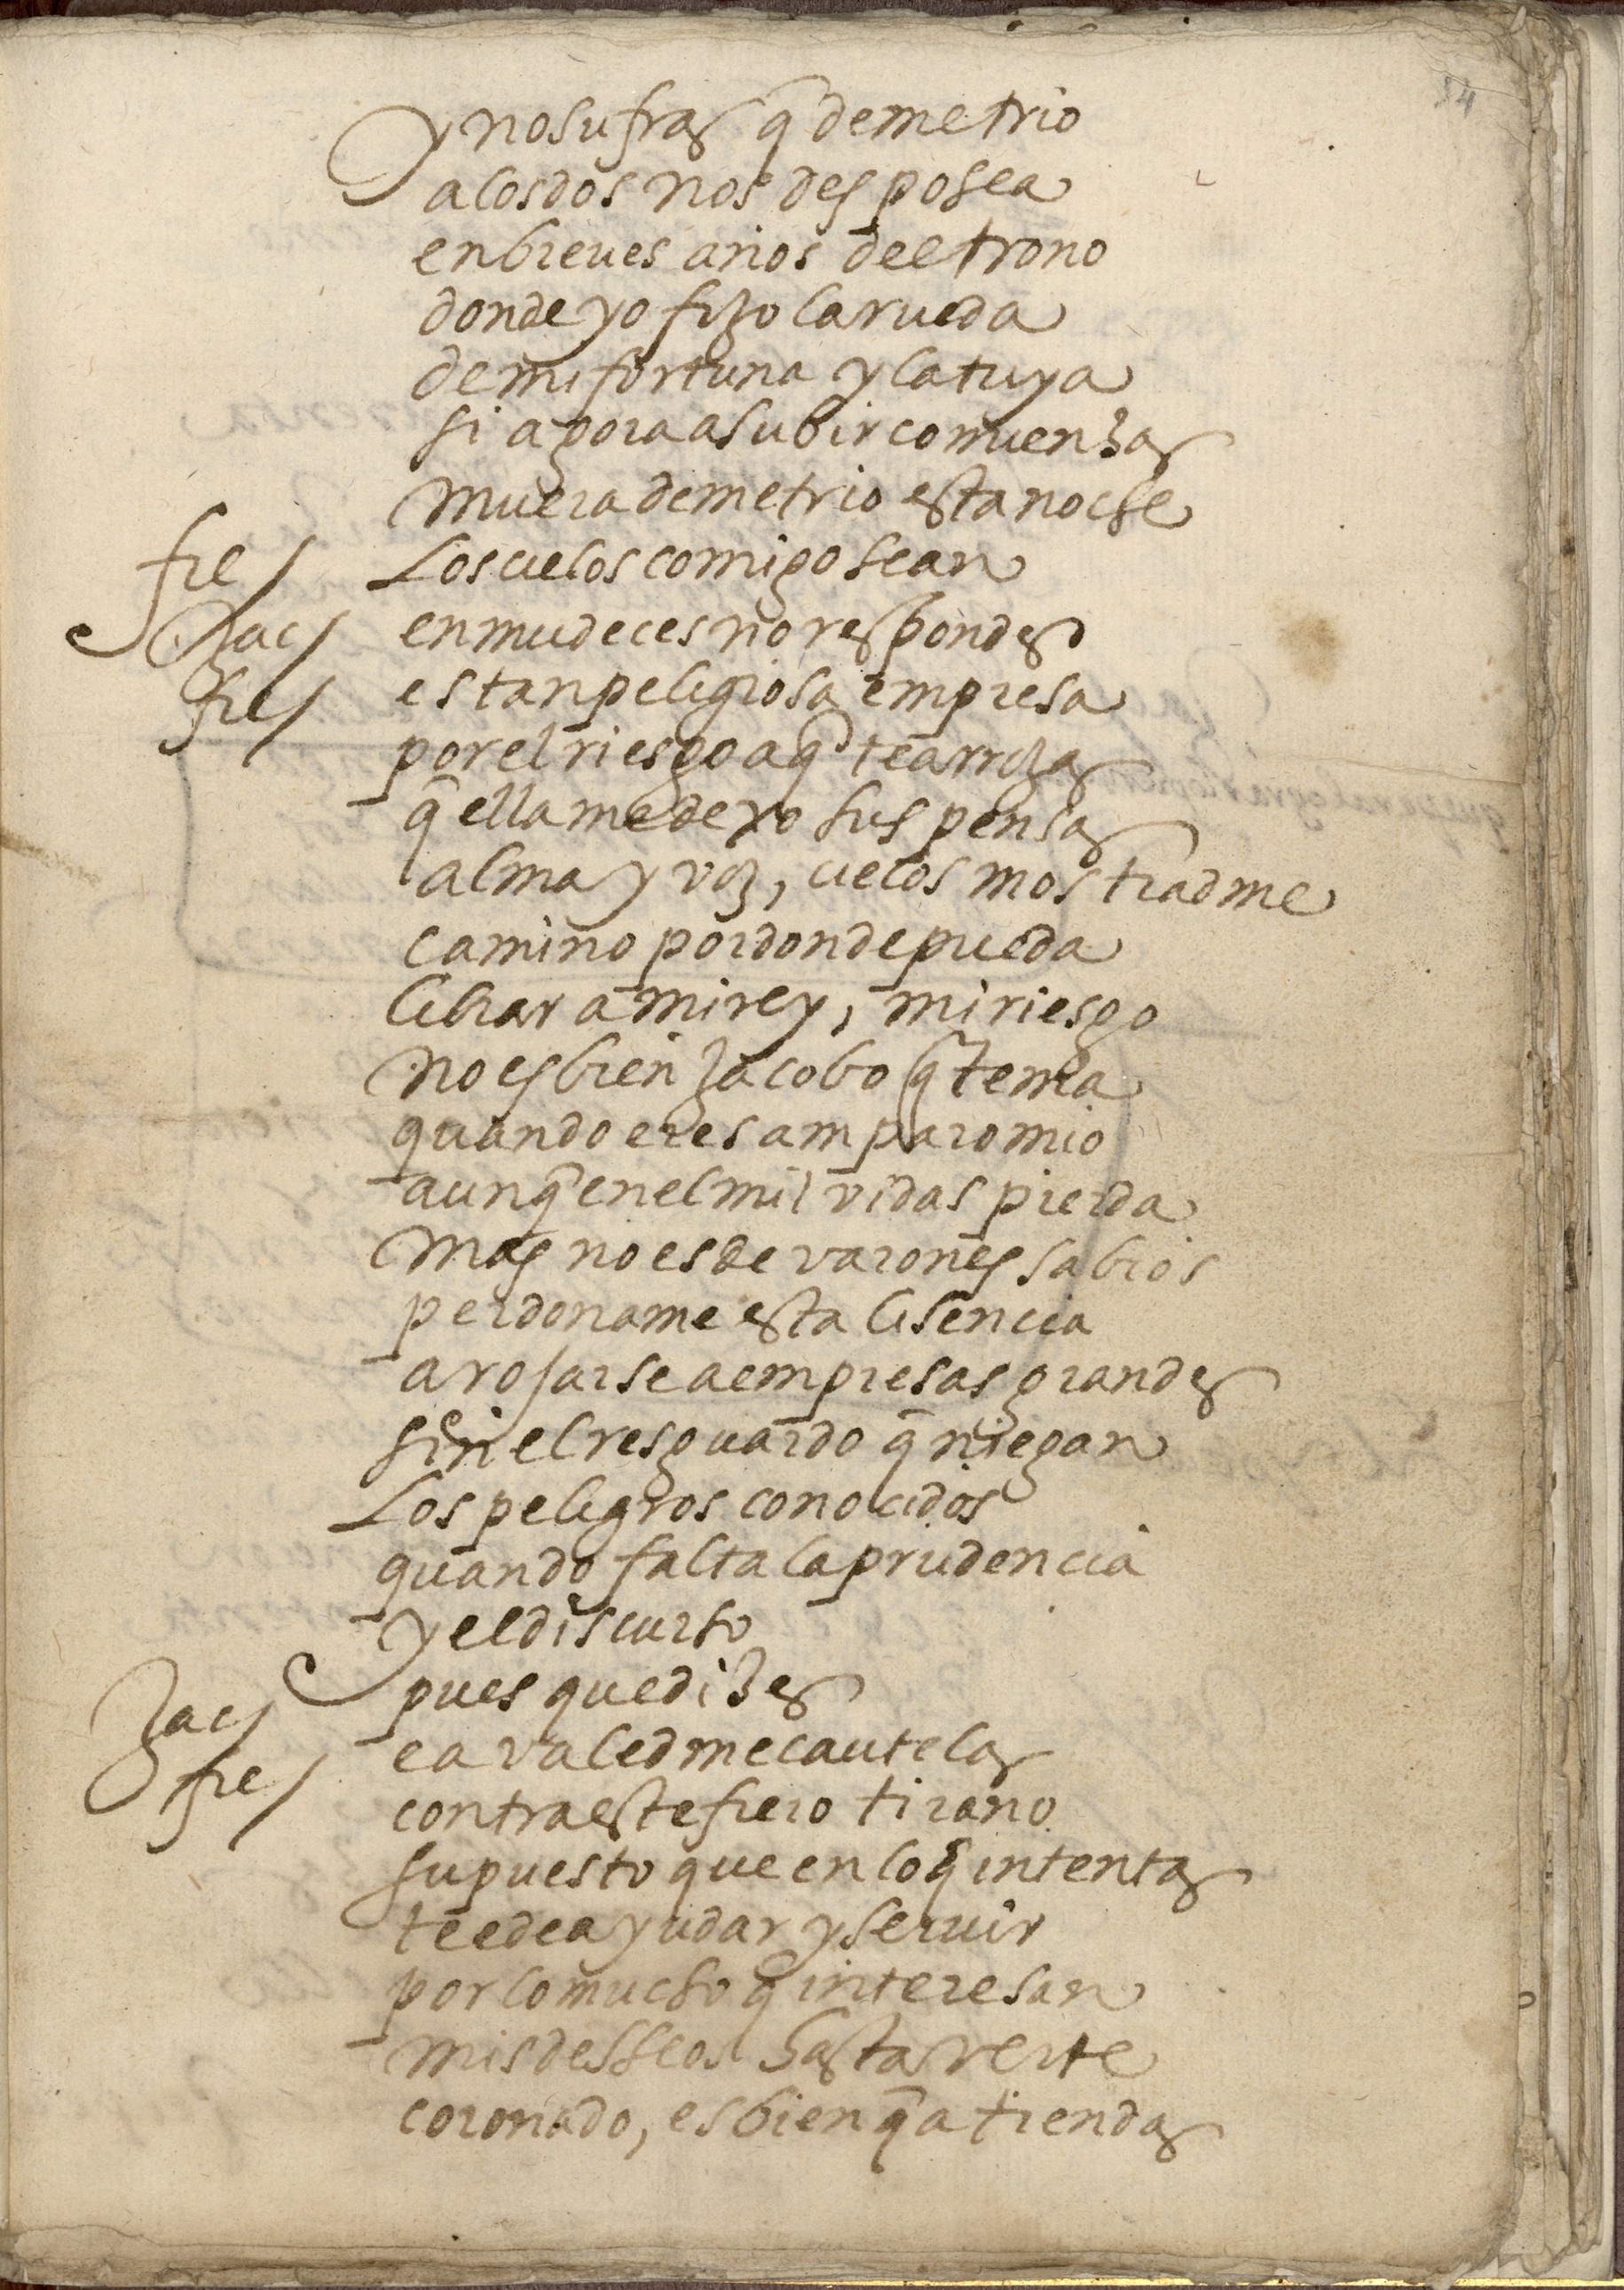 54
y no sufras q̄ demetrio
a los dos nos des posea
en breues años del trono
donde yo fizo la rueda
de mi fortuna y la tuya
si agora a subir comienzas
muera demetrio esta noche
fre/ Los cielos comigo sean
Zac/ enmudeces no respondes
fre/ es tan peligrosa empresa
por el riesgo a q̄ te arrozas
q̄ ella me dexo suspensas
alma y voz, cielos mostradme
camino por donde pueda
librar a mi rey, mi riesgo
no es bien Zacobo q̄ tema
quando eres amparo mio
aunq̄ en el mil vidas pierda
mas no es de varones sabios
perdoname esta lisencia
arojarse a empresas grandes
sin el resguardo q̄ niegan
Los peligros conocidos
quando falta la prudencia
y el discurso
Zac/ pues que dizes
fre/ ea valedme cautelas
contra este fiero tirano
supuesto que en lo q̄ intentas
te e de ayudar y seruir
por lo mucho q̄ interesan
mis desseos hasta verte
coronado, es bien q̄ atiendas